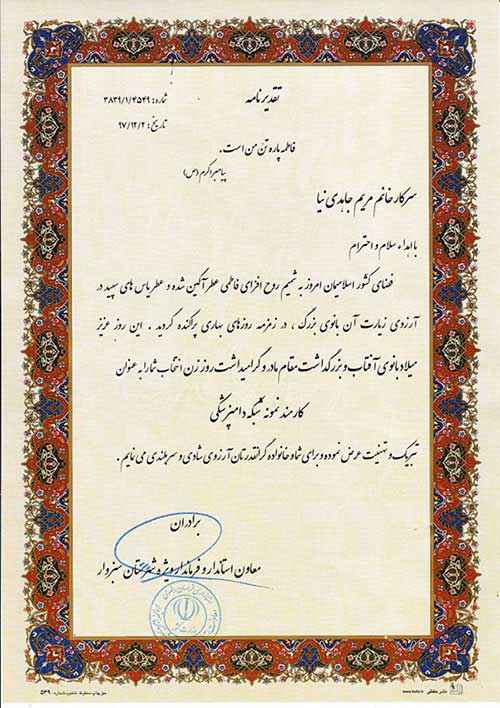 تقدیرنامه
شماره: ۳۸۳۹/۱/۴۵۴۹
تاریخ: ۹۷/۱۲/۲
فاطمه پاره تن من است.
پیامبر اکرم (ص)
سرکار خانم مریم جاهدی نیا
با اهداء سلام و احترام
فضای کشور اسلامیمان امروز به شمیم روح افزای فاطمی عطرآگین شده و عطر یاس های سپید در
آرزوی زیارت آن بانوی بزرگ ، در زمزمه روزهای بهاری پراکنده گردید . این روز عزیز
میلاد بانوی آفتاب و بزرگداشت مقام مادر و گرامیداشت روز زن انتخاب شما را به عنوان
کارمند نمونه شبکه دامپزشکی
تبریک و تهنیت عرض نموده و برای شما و خانواده گرانقدرتان آرزوی شادی و سربلندی می نمایم .
برادران
معاون استاندار و فرماندار ویژه شهرستان سبزوار
حق چاپ محفوظ شماره: ۵۳۹